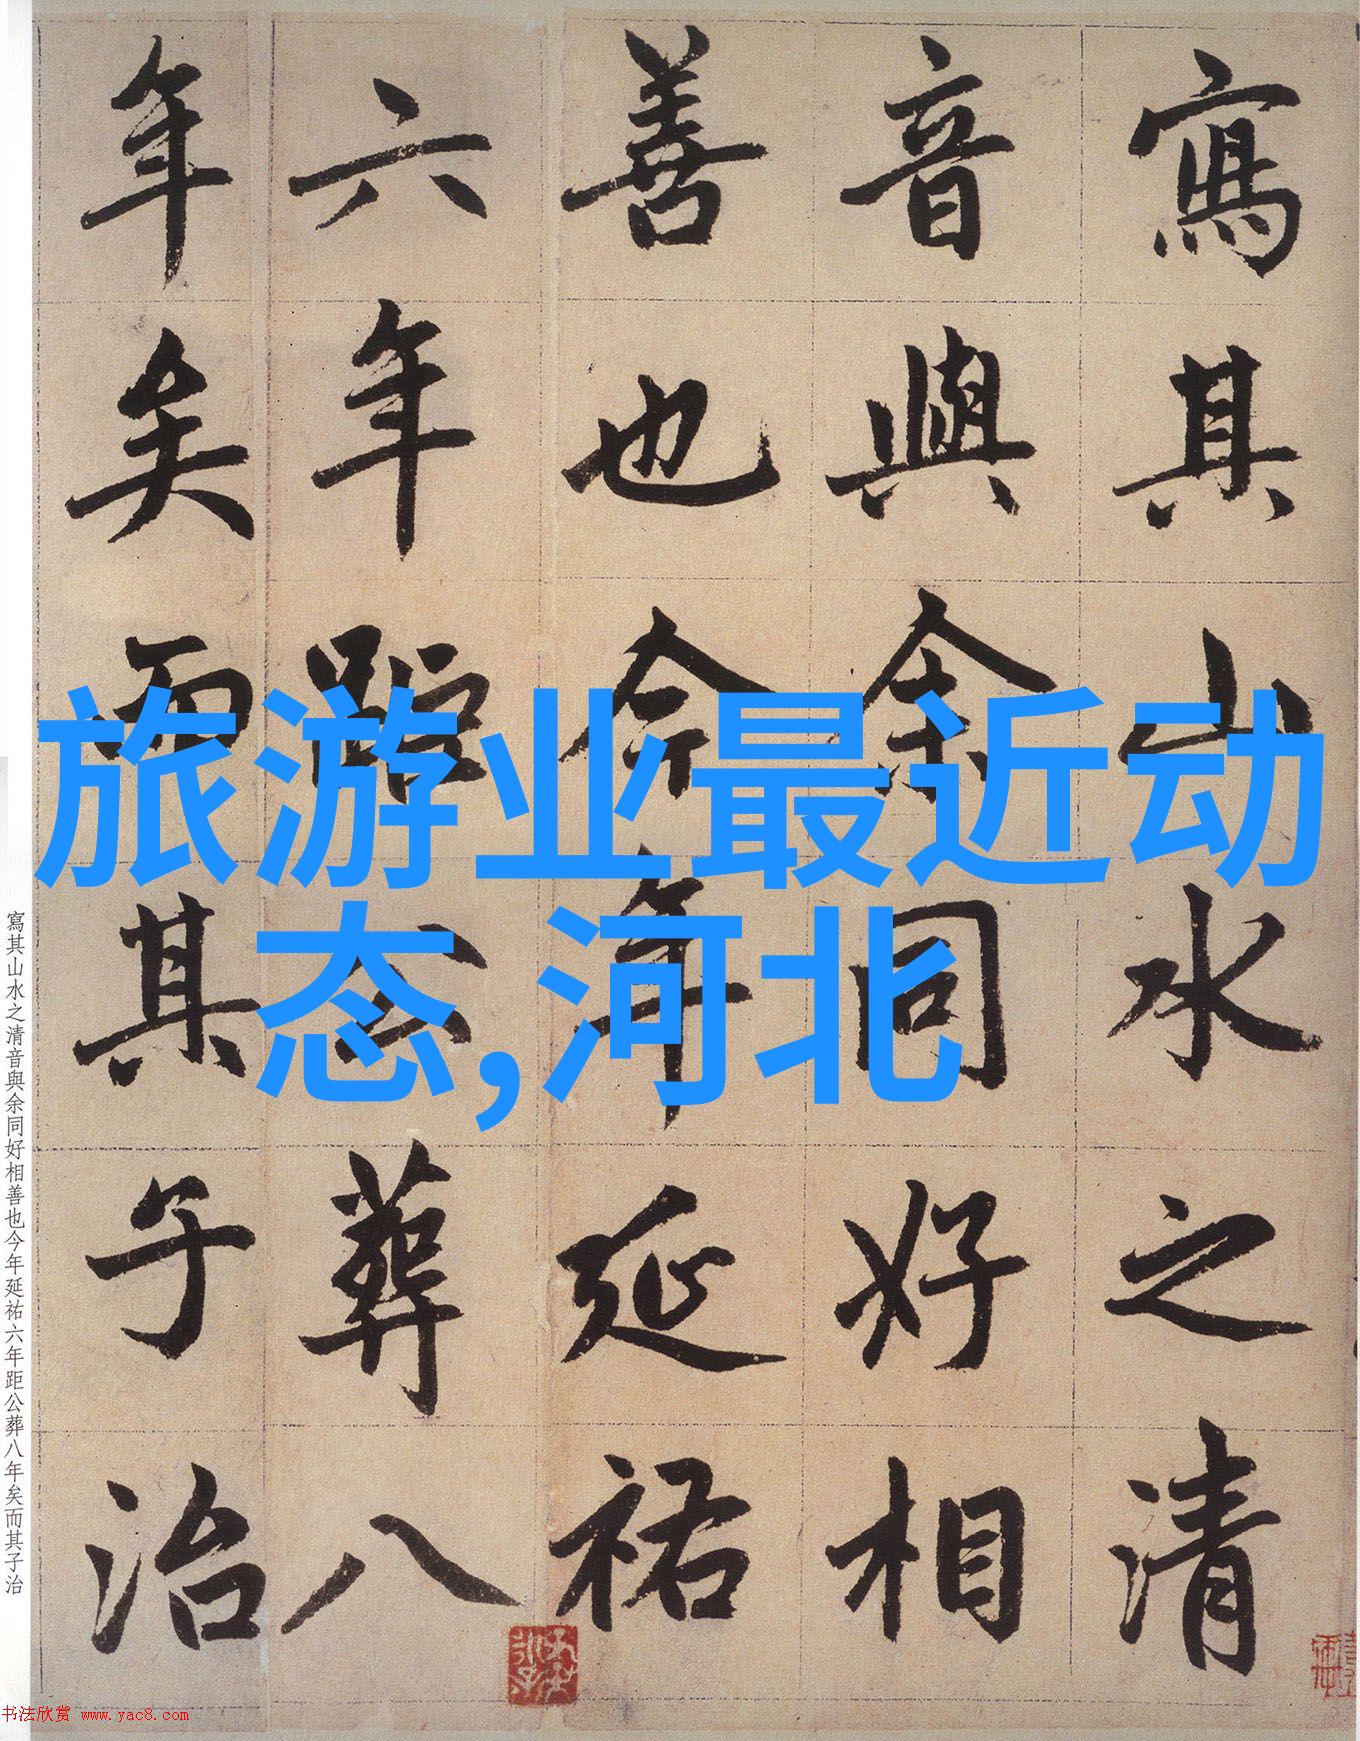 寫其山水之清
音與余同好相
善也今年延祐
六年距公葬八
年矣而其子治
旅游业最近动
态,河北
寫其山水之清音與余同好相善也今年延祐六年距公葬八年矣而其子治
书法欣赏 www.yac8.com